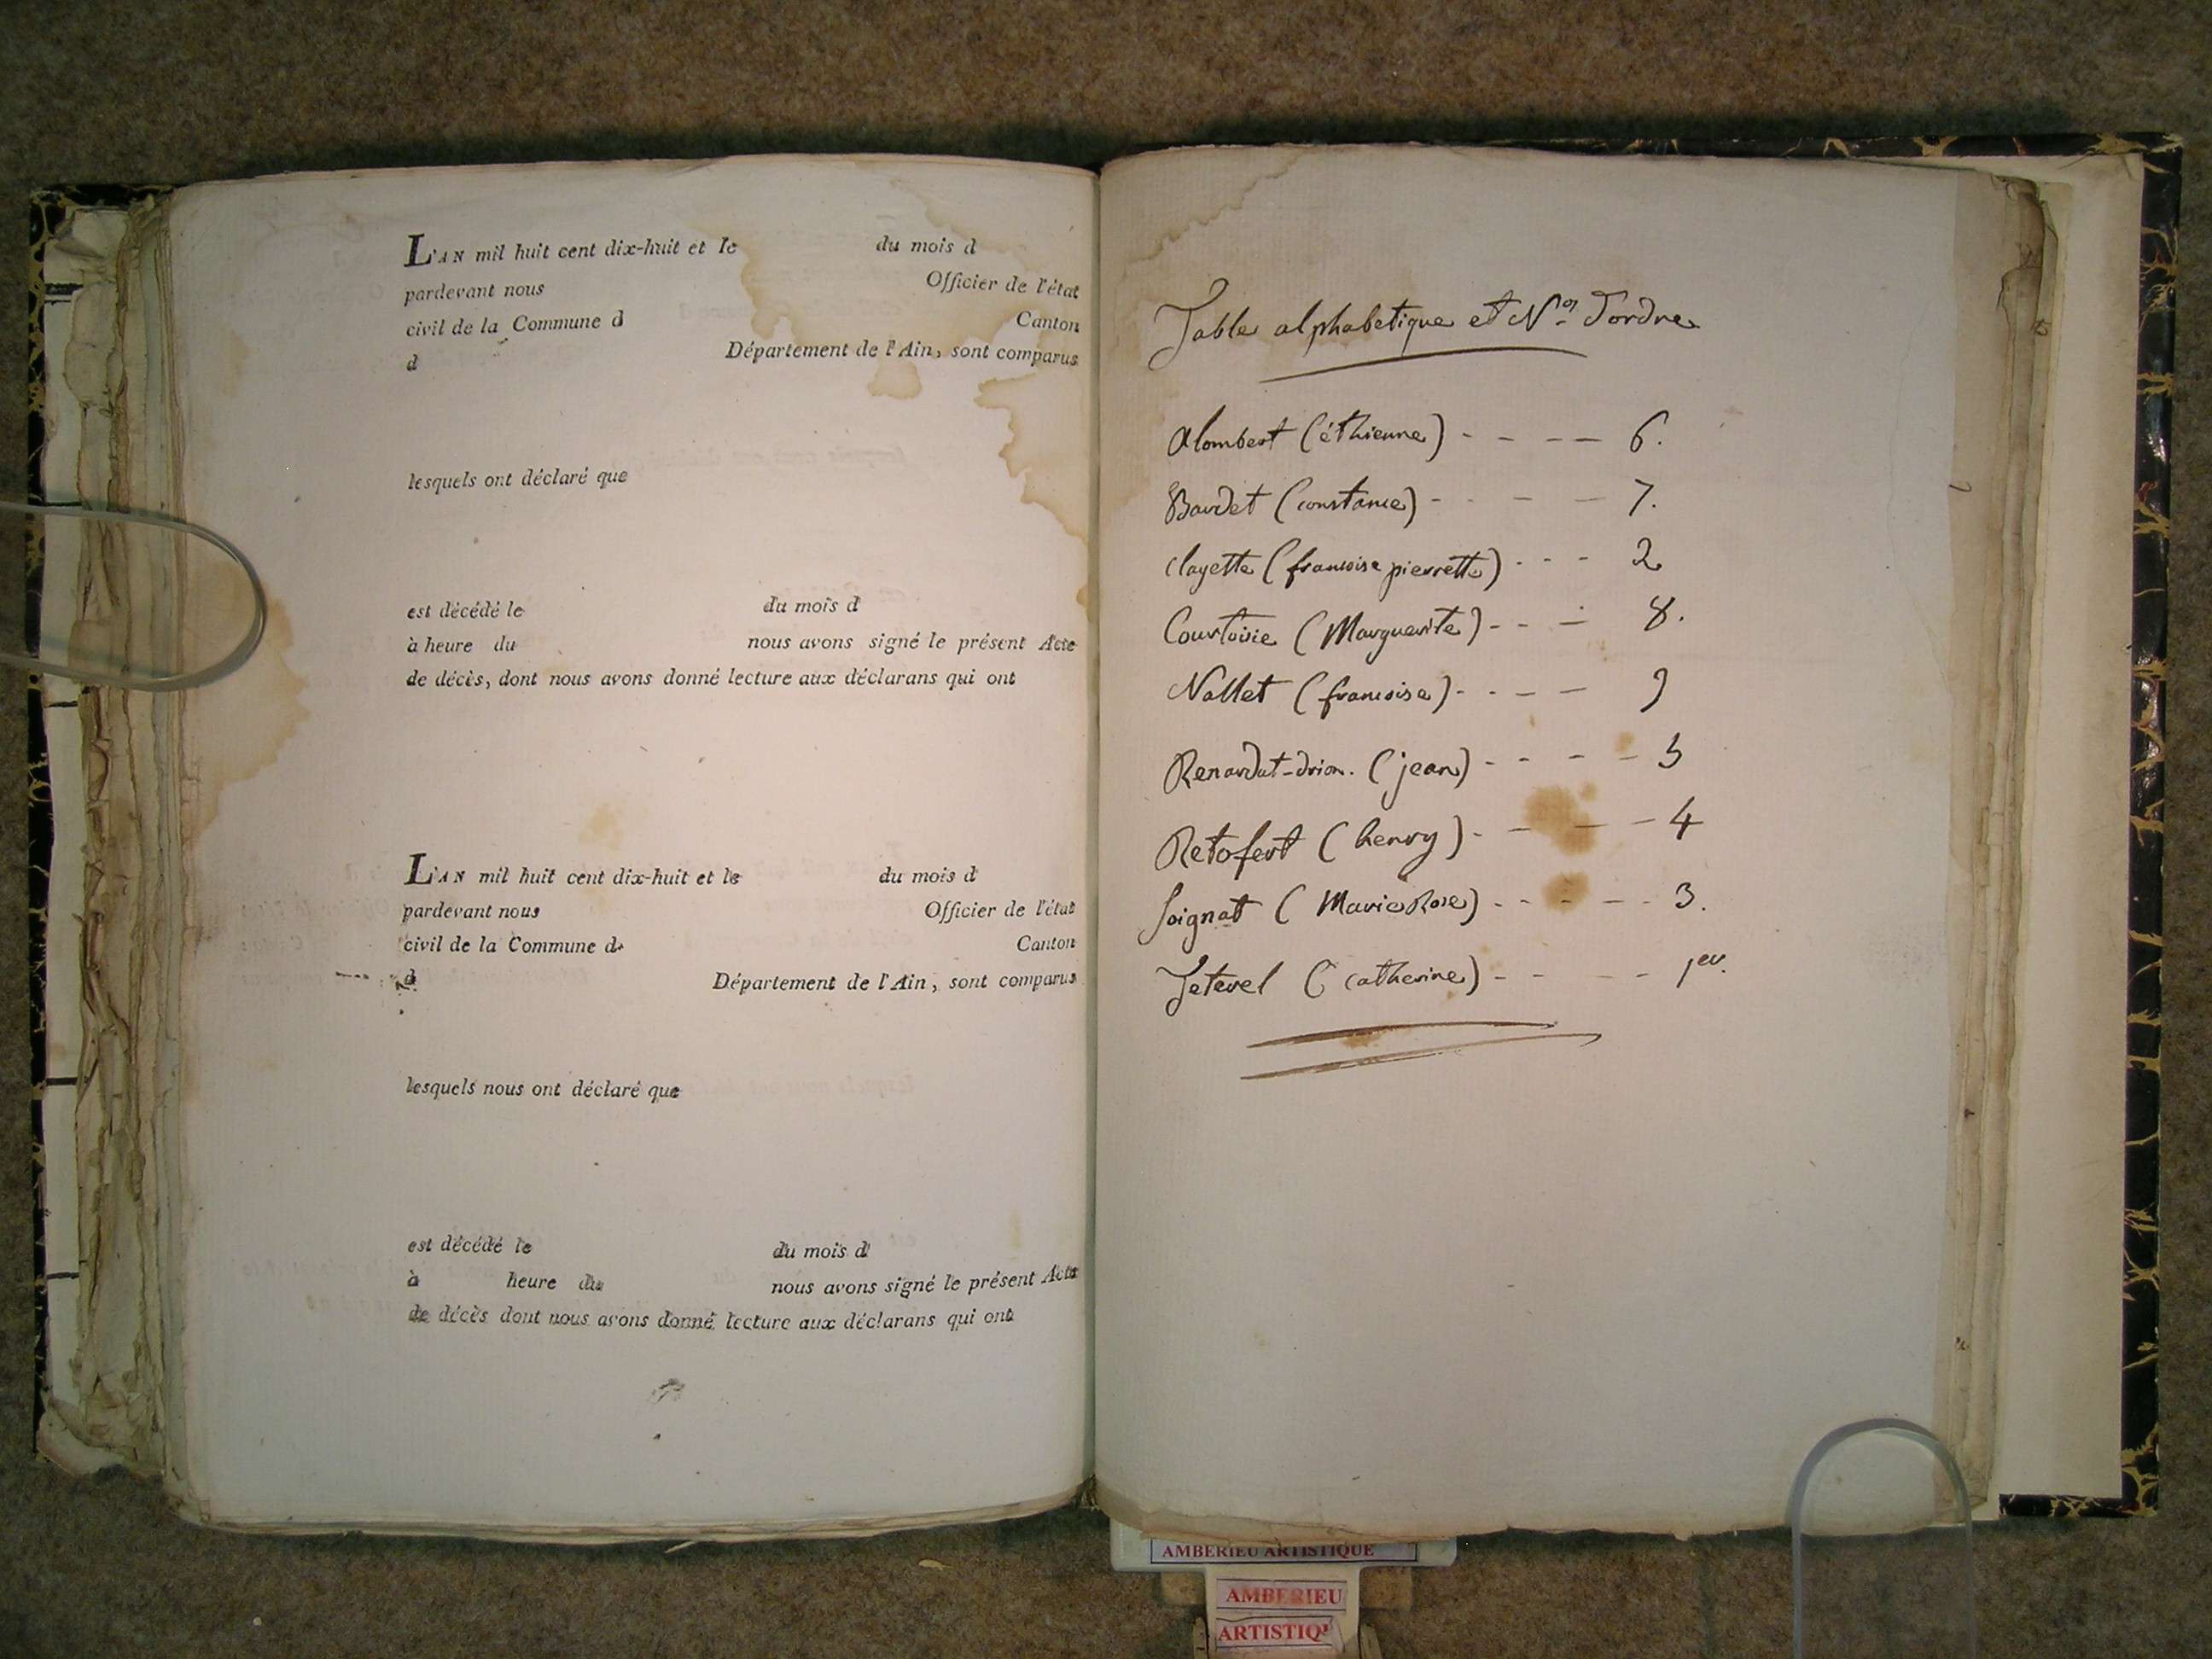 L'AN mil huit cent dix-huit et le du mois d
pardevant nous Officier de l'état
civil de la Commune d Canton
d Département de l'Ain, sont comparus
lesquels ont déclaré que
est décédé le du mois d
à heure du nous avons signé le présent Acte
de décès, dont nous avons donné lecture aux déclarans qui ont
L'AN mil huit cent dix-huit et le du mois d
pardevant nous Officier de l'état
civil de la Commune d Canton
d Département de l'Ain, sont comparus
lesquels nous ont déclaré que
est décédé le du mois d
à heure du nous avons signé le présent Acte
de décès dont nous avons donné lecture aux déclarans qui ont
Table alphabetique et Nos D'ordre
Alombert (éthienne) - - - - 6.
Baudet (constance) - - - - 7.
Clayette (francoise pierrette) - - - 2
Courtoisie (Marguerite) - - - 8.
Nallet (francoise) - - - - 9
Renardat-drion. (jean) - - - - 5
Retofert (henry) - - - - 4
Soignat (Marie Rose) - - - - 3.
Tetevel (Catherine) - - - - 1er.
AMBERIEU ARTISTIQUE
AMBERIEU
ARTISTIQU